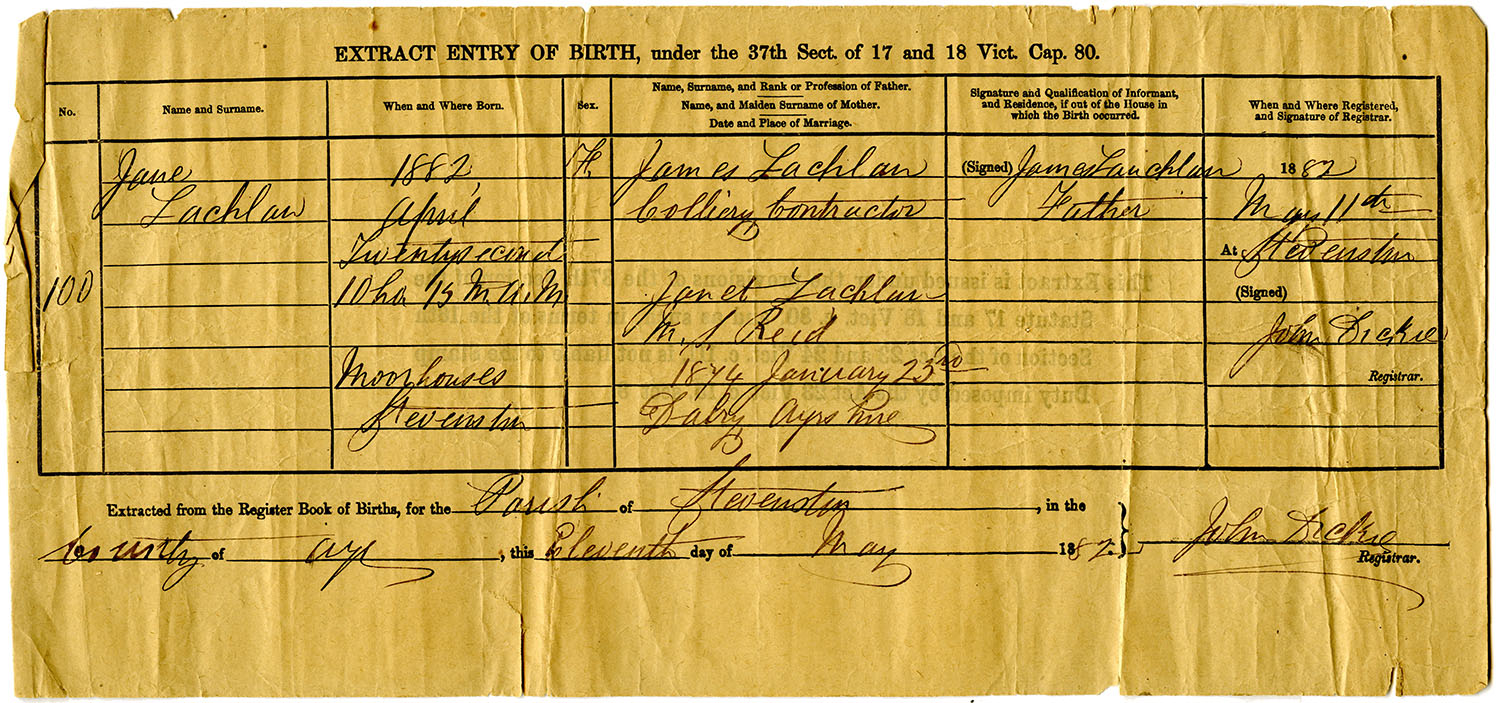 EXTRACT ENTRY OF BIRTH, under the 37th Sect. of 17 and 18 Vict. Cap. 80.
No.
Name and Surname.
When and Where Born.
Sex.
Name, Surname, and Rank or Profession of Father.
Name, and Maiden Surname of Mother.
Date and Place of Marriage.
Signature and Qualification of Informant,
and Residence, if out of the House in
which the Birth occurred.
When and Where Registered,
and Signature of Registrar.
100
Jane
Lachlan
1882,
April
Twentysecond
10 ho 15 M. A. M
Moorhouses
Stevenston
F.
James Lachlan
Colliery Contractor
Janet Lachlan
M. S. Reid
1874 January 23rd
Dalry Ayrshire
(Signed) James Lauchlan
Father
1882
May 11th
At Stevenston
(Signed)
John Dickie
Registrar.
Extracted from the Register Book of Births, for the Parish of Stevenston, in the
County of Ayr, this Eleventh day of May 1882.
John Dickie
Registrar.